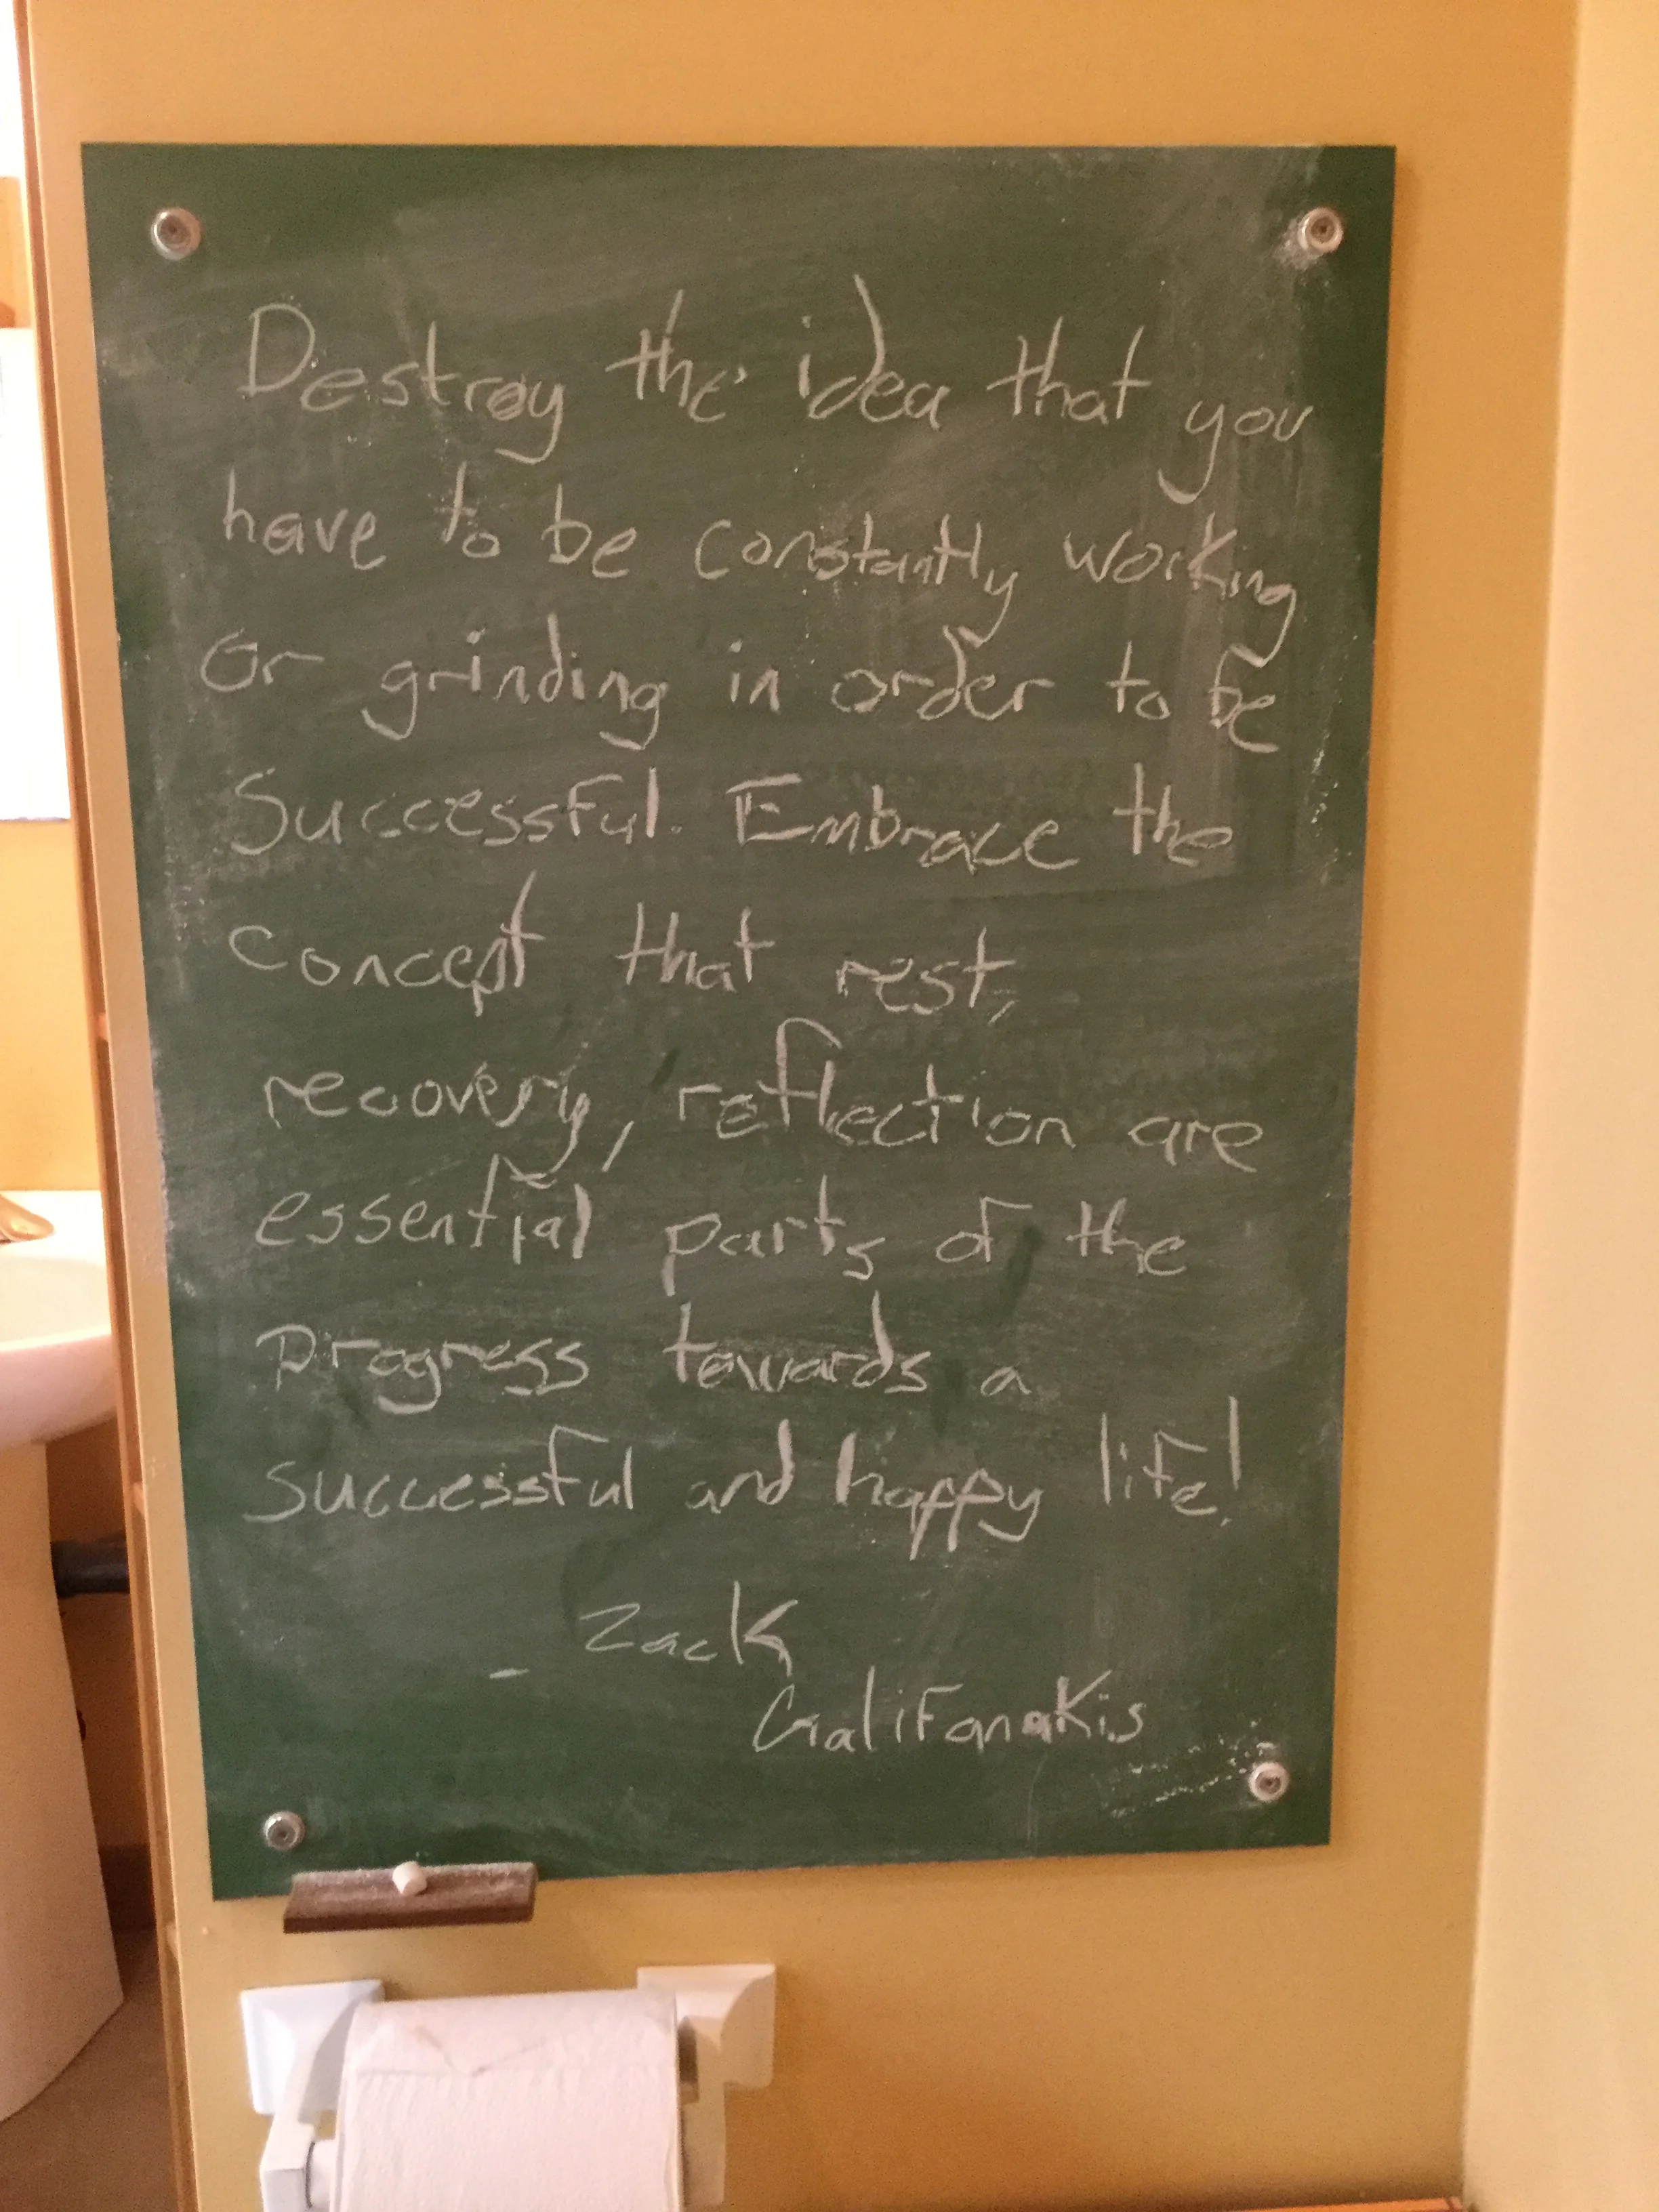 Destroy the idea that you
have to be constantly working
or grinding in order to be
Successful. Embrace the
concept that rest,
recovery, reflection are
essential parts of the
Progress towards a
successful and happy life!
- Zack
Galifanakis